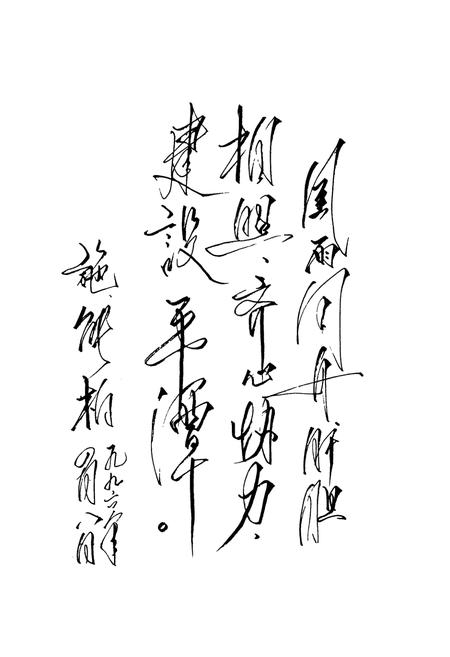 風雨同舟肝胆
相照、齐心协力、
建設平潭。
施能柏
九九六年